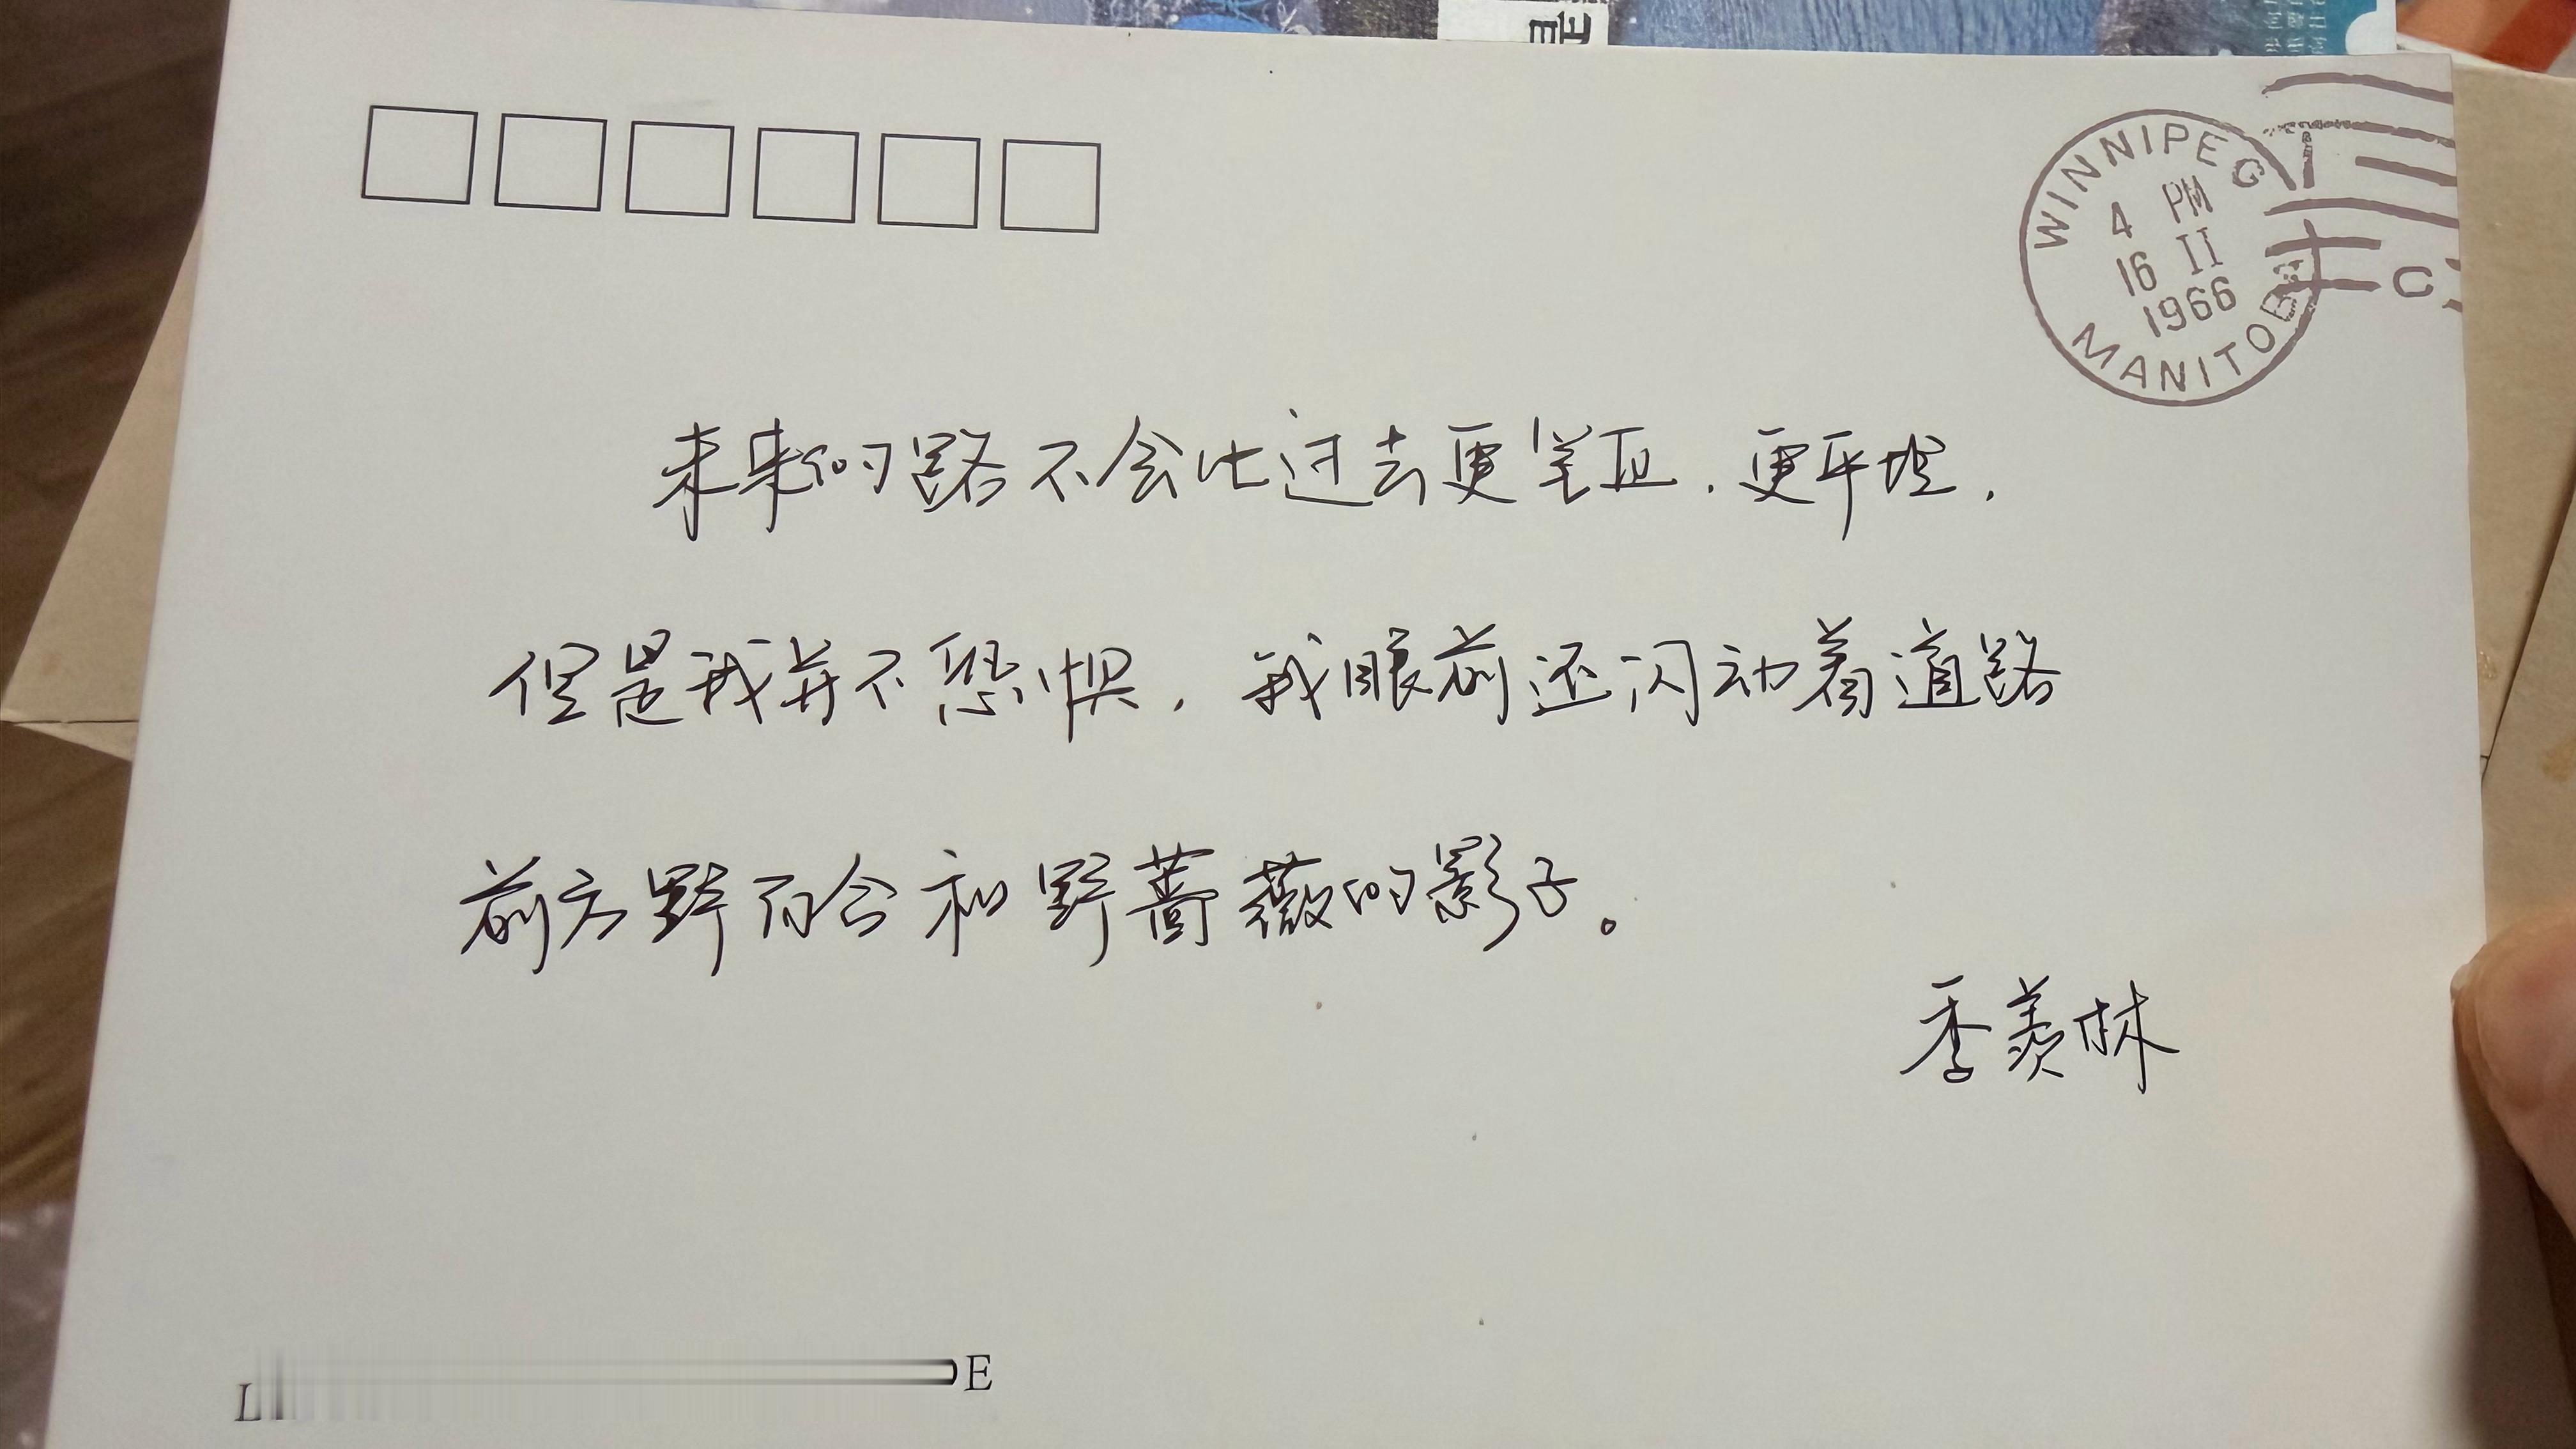 WINNIPEG
4 PM
16 II
1966
MANITOBA
C
未来的路不会比过去更笔直,更平坦,
但是我并不恐惧,我眼前还闪动着道路
前方野百合和野蔷薇的影子。
季羡林
E